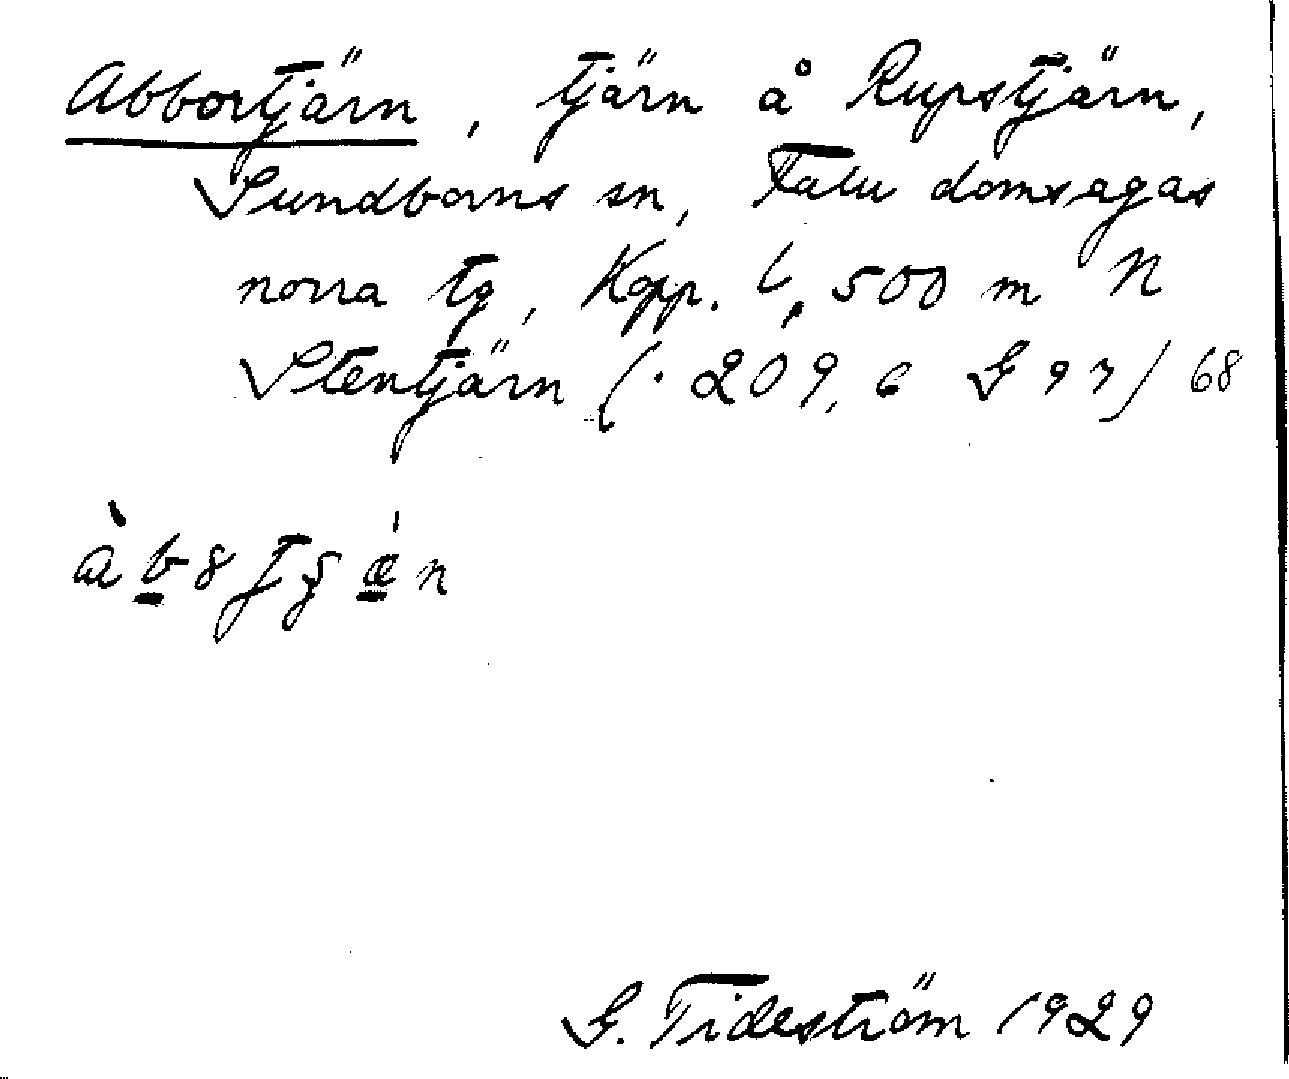 Abbortjärn, tjärn å Rupstjärn,
Sundborns sn, Falu domsagas
norra tg, Kopp. l, 500 m N
Stentjärn (· 209, 6 G 97) 68
G. Tideström 1929